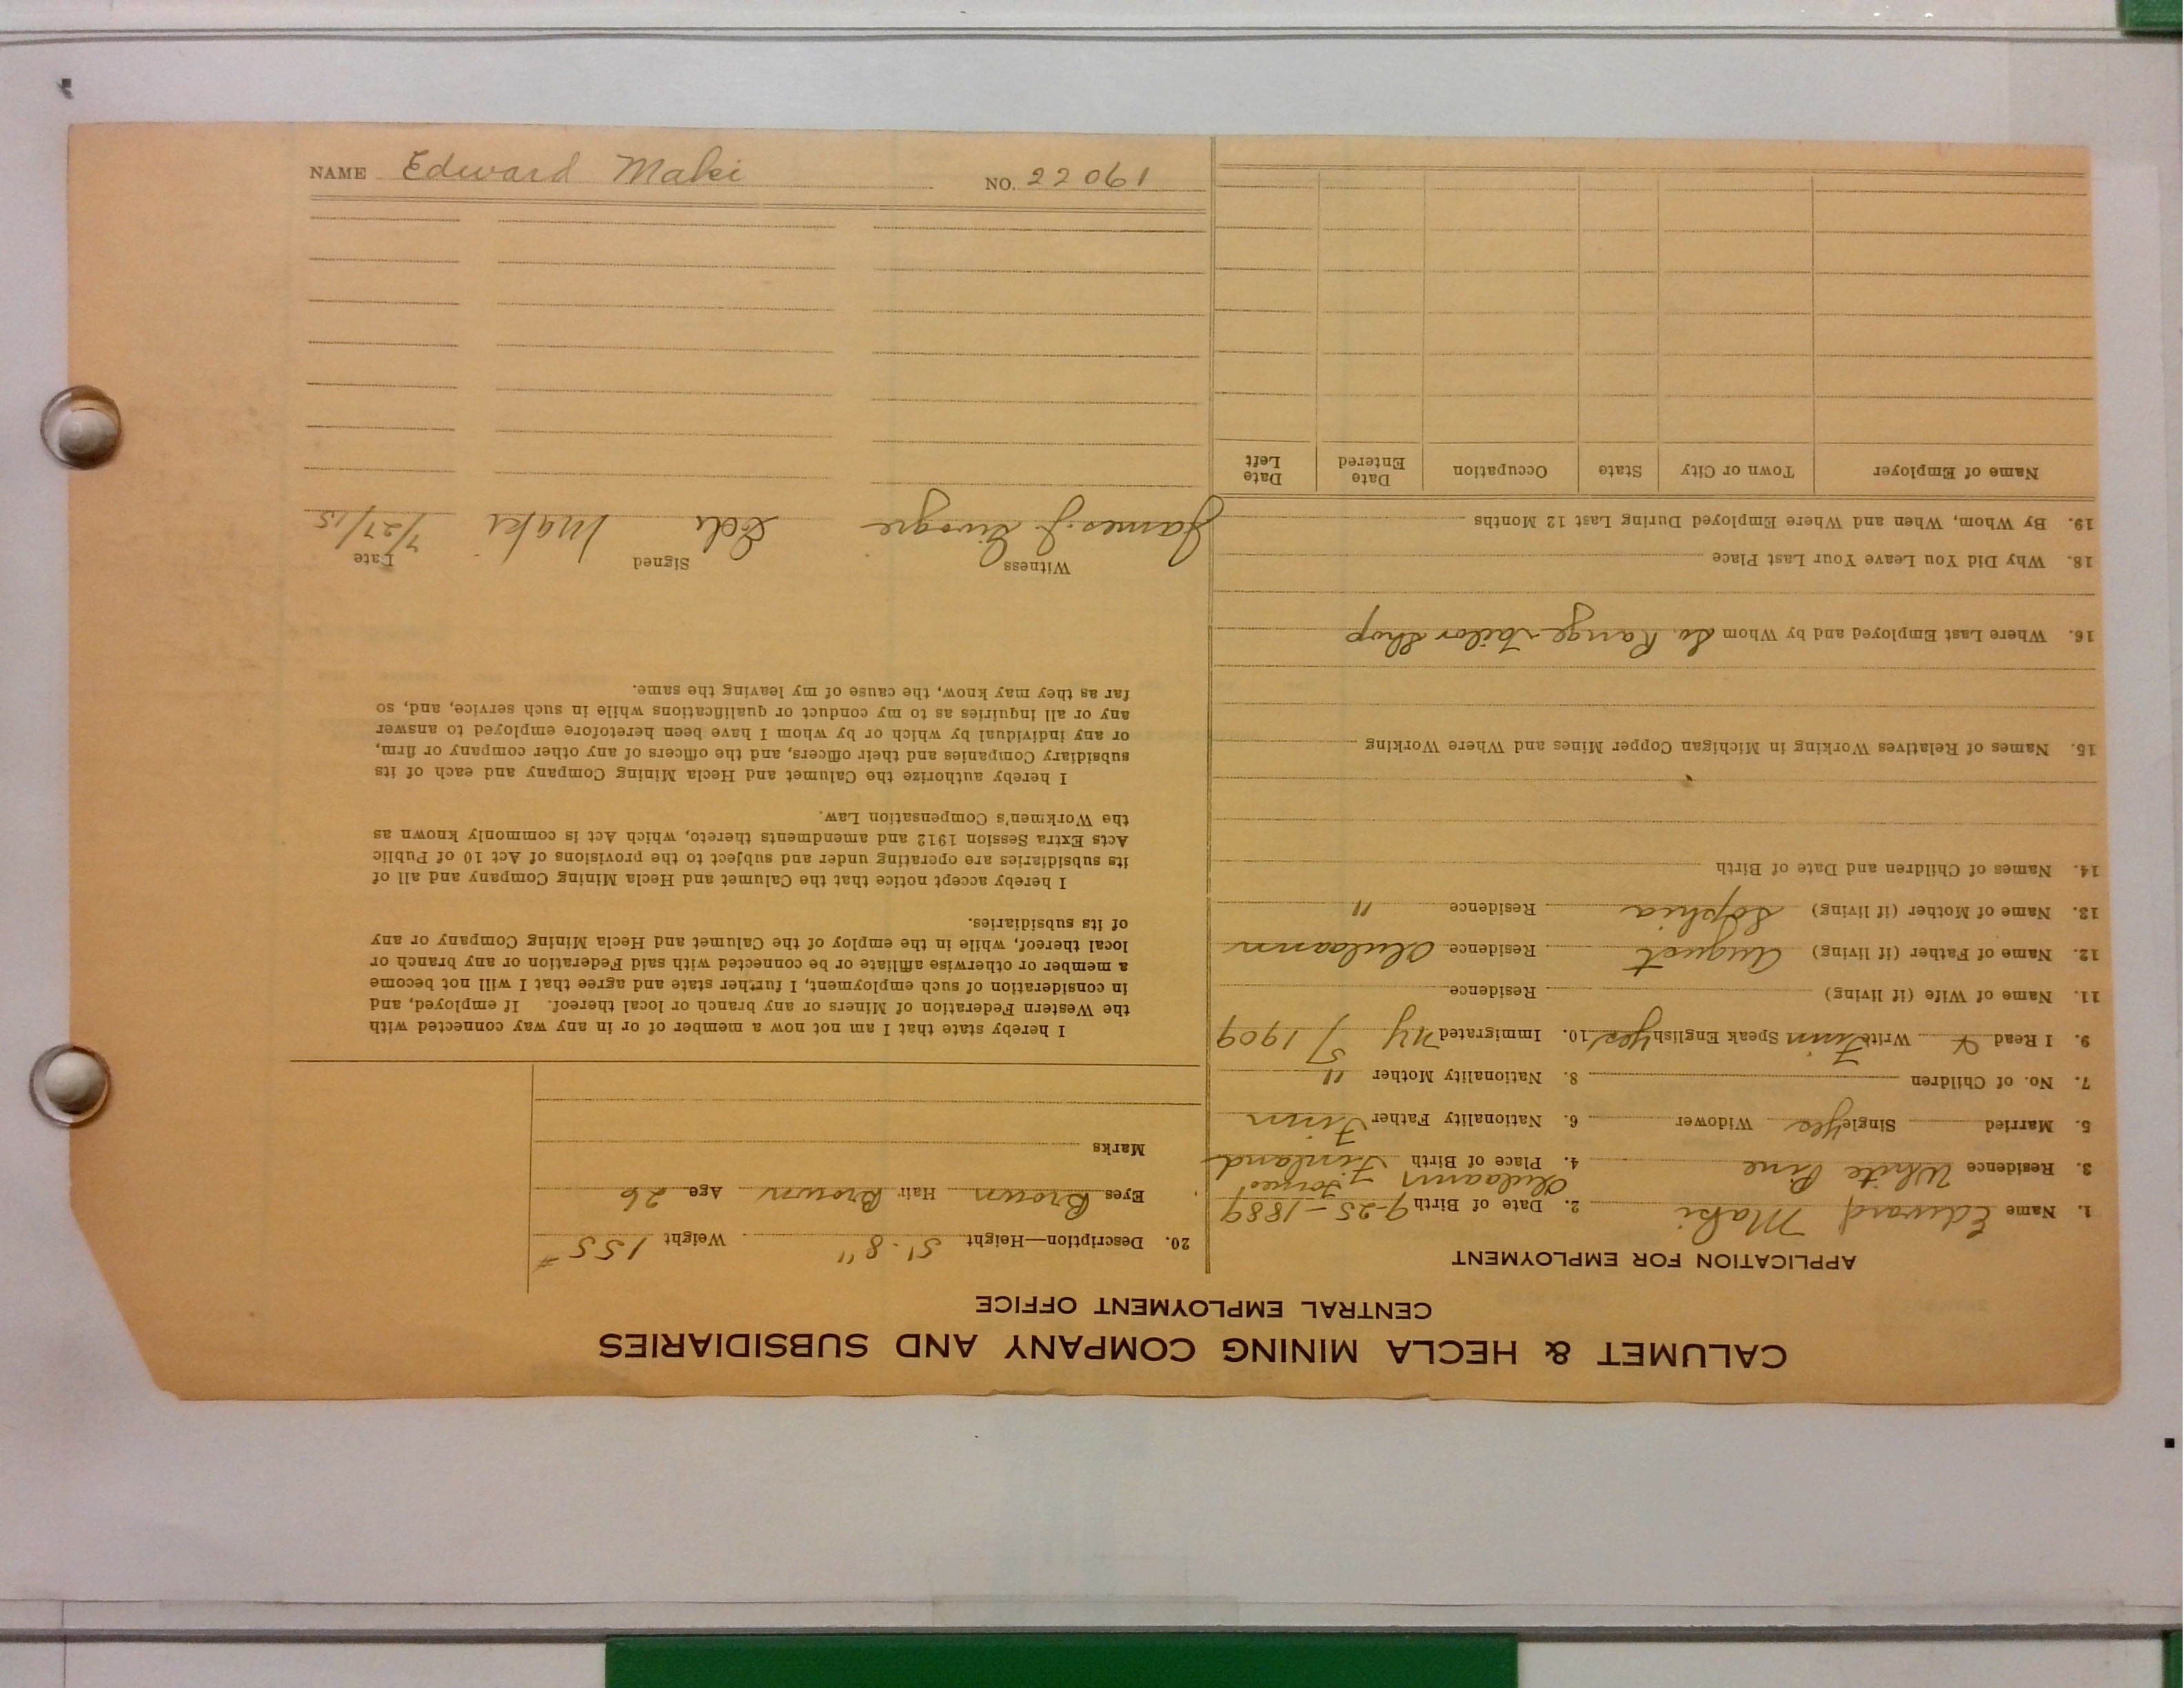 NAME Edward Maki NO. 22061
CALUMET & HECLA MINING COMPANY AND SUBSIDIARIES
CENTRAL EMPLOYMENT OFFICE
APPLICATION FOR EMPLOYMENT
1. Name Edward Maki 2. Date of Birth 9-25-1889
3. Residence White Pine 4. Place of Birth Finland
5. Married Single Yes Widower 6. Nationality Father Finn
7. No. of Children 8. Nationality Mother "
9. I Read & Write Finn Speak English Yes 10. Immigrated NY 5/1909
11. Name of Wife (if living) Residence
12. Name of Father (if living) August Residence
13. Name of Mother (if living) Sophia Residence "
14. Names of Children and Date of Birth
15. Names of Relatives Working in Michigan Copper Mines and Where Working
16. Where Last Employed and by Whom So. Range Tailor Shop
18. Why Did You Leave Your Last Place
19. By Whom, When and Where Employed During Last 12 Months
Name of Employer Town or City State Occupation Date Entered Date Left
20. Description—Height 5'-8" Weight 155#
Eyes Brown Hair Brown Age 26
Marks
I hereby state that I am not now a member of or in any way connected with
the Western Federation of Miners or any branch or local thereof. If employed, and
in consideration of such employment, I further state and agree that I will not become
a member or otherwise affiliate or be connected with said Federation or any branch or
local thereof, while in the employ of the Calumet and Hecla Mining Company or any
of its subsidiaries.
I hereby accept notice that the Calumet and Hecla Mining Company and all of
its subsidiaries are operating under and subject to the provisions of Act 10 of Public
Acts Extra Session 1912 and amendments thereto, which Act is commonly known as
the Workmen's Compensation Law.
I hereby authorize the Calumet and Hecla Mining Company and each of its
subsidiary Companies and their officers, and the officers of any other company or firm,
or any individual by which or by whom I have been heretofore employed to answer
any or all inquiries as to my conduct or qualifications while in such service, and, so
far as they may know, the cause of my leaving the same.
Witness Signed Date
James J. Maki 7/27/15